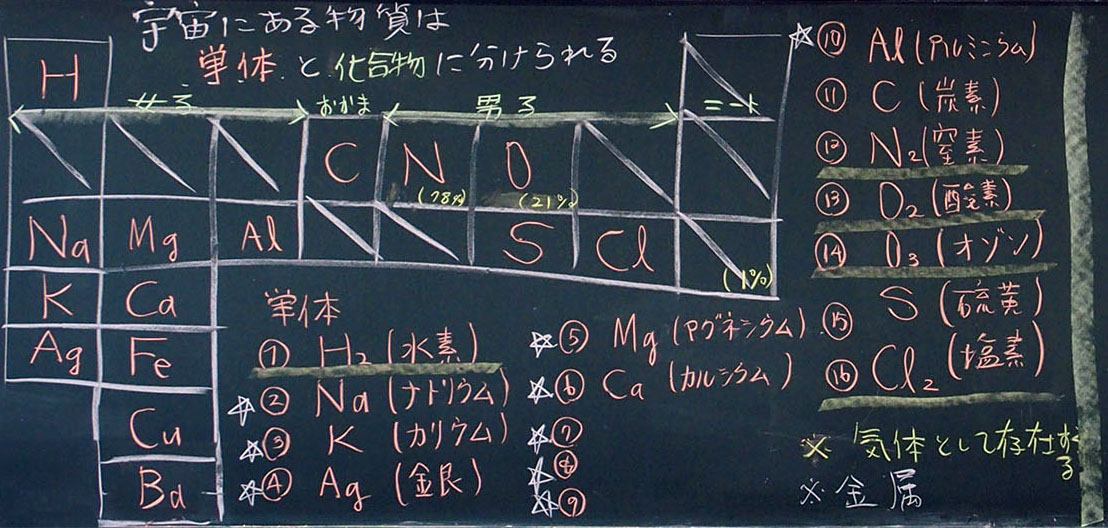 宇宙にある物質は
単体と化合物に分けられる
H
女子 おかま 男子 ニート
C N O
(78%) (21%)
Na Mg Al S Cl
(1%)
K Ca
Ag Fe
Cu
Ba
単体
① H₂ (水素)
☆② Na (ナトリウム)
☆③ K (カリウム)
☆④ Ag (金艮)
☆⑤ Mg (マグネシウム)
☆⑥ Ca (カルシウム)
☆⑦
☆⑧
☆⑨
☆⑩ Al (アルミニウム)
⑪ C (炭素)
⑫ N₂ (窒素)
⑬ O₂ (酸素)
⑭ O₃ (オゾン)
⑮ S (硫黄)
⑯ Cl₂ (塩素)
※ 気体として存在する
※ 金属